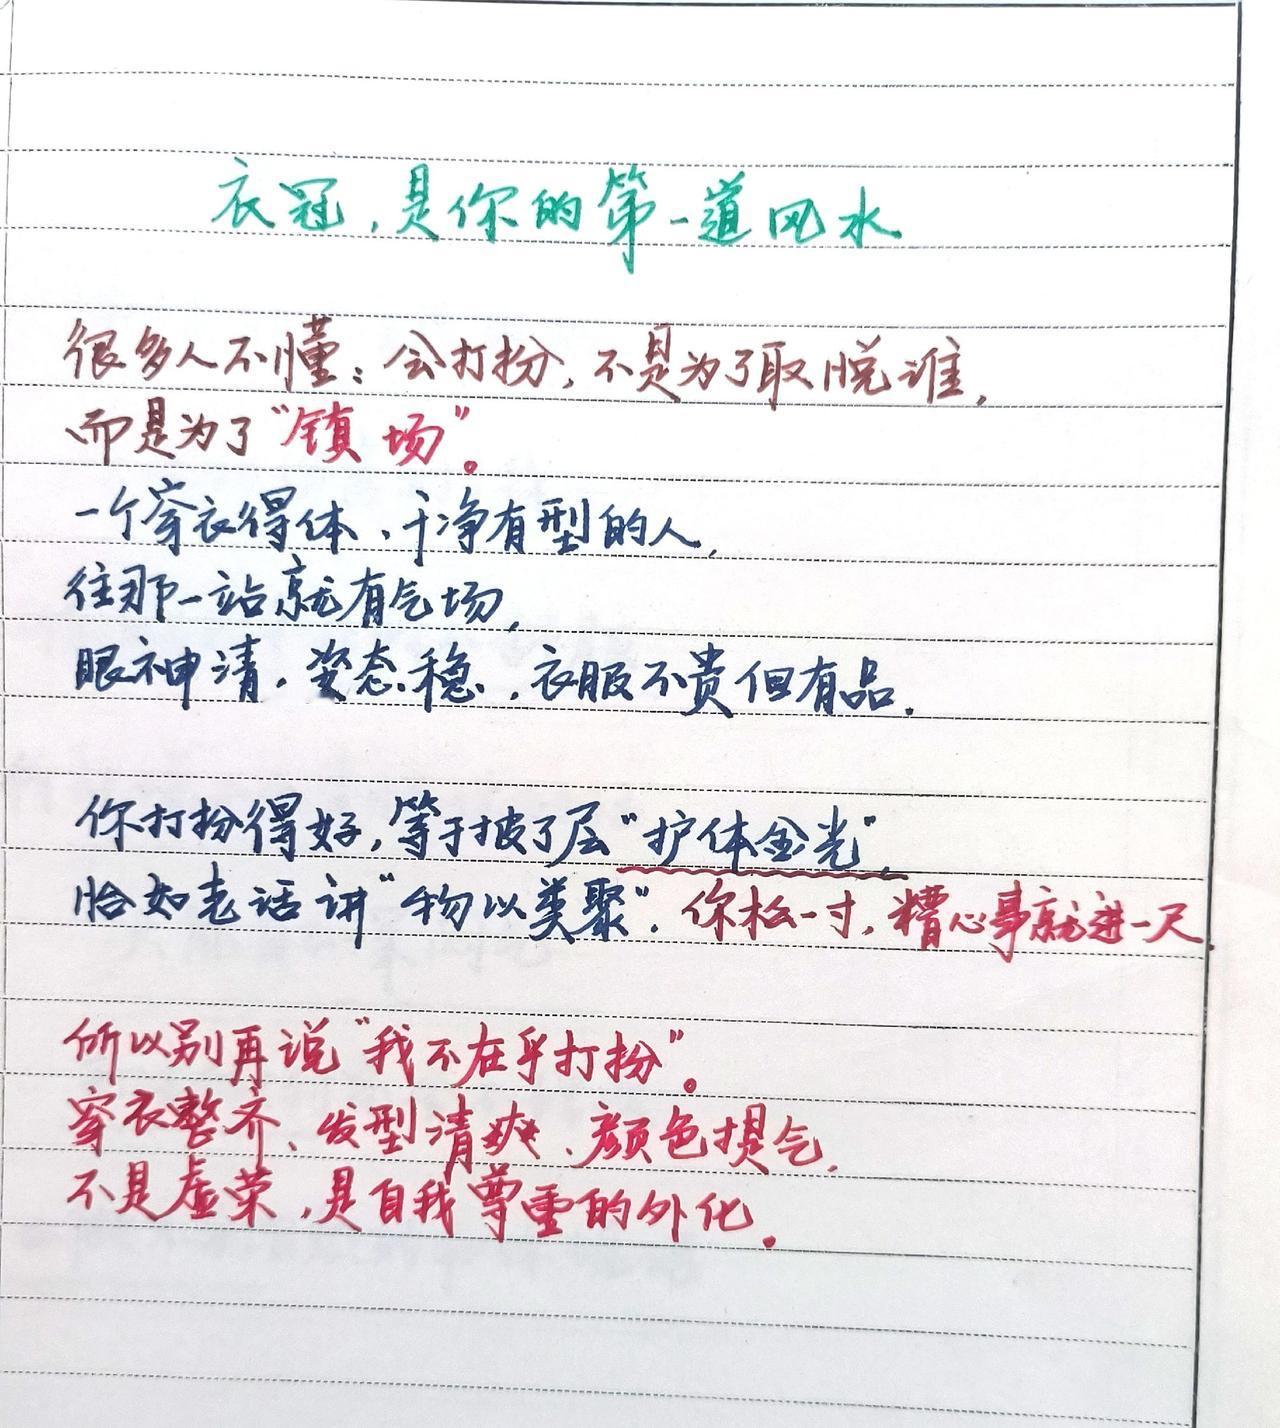 衣冠，是你的第一道风水
很多人不懂：会打扮，不是为了取悦谁，
而是为了"镇场"。
一个穿衣得体、干净有型的人，
往那一站就有气场，
眼神清，姿态稳，衣服不贵但有品。
你打扮得好，等于披了层"护体金光"，
恰如老话讲"物以类聚"。你松一寸，糟心事就进一尺，
所以别再说"我不在乎打扮"。
穿衣整齐、发型清爽、颜色提气，
不是虚荣，是自我尊重的外化。